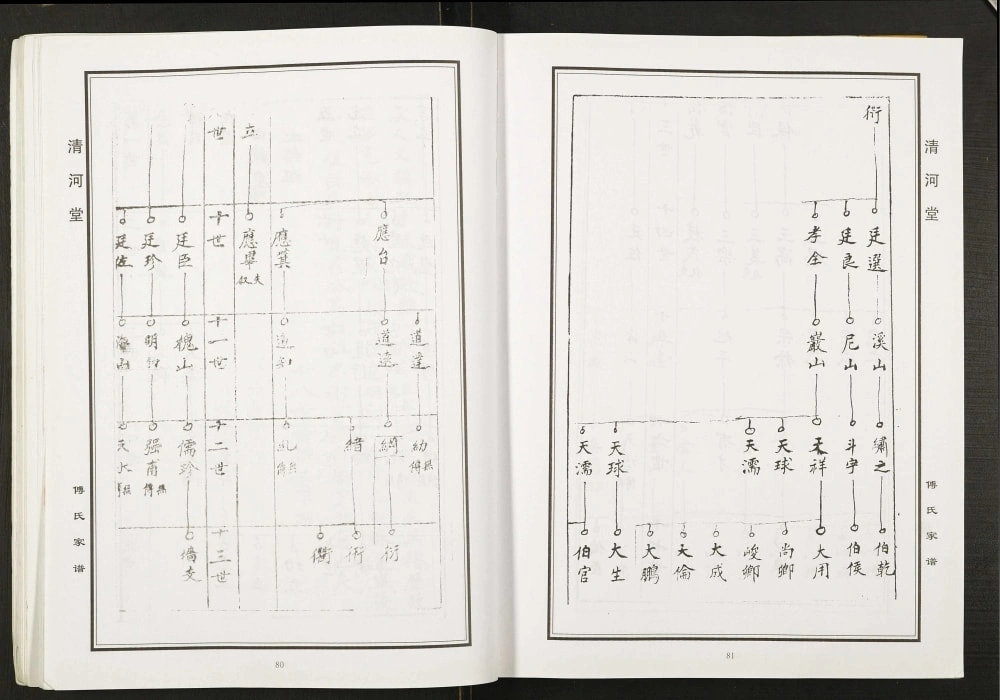 衍
廷選
廷良
孝全
溪山
尼山
巖山
繡之
斗宇
天祥
天球
天濡
天球
天濡
伯乾
伯俟
大用
尚卿
峻卿
大成
天倫
大鵬
大生
伯宫
清河堂
傅氏家谱
81
世
立
應台
應箕
應舉
十世
廷臣
廷珍
廷佐
道達
道遠
十一世
槐山
明
山
幼
傅
綺
緒
十二世
儒珍
强甫
天
衍
術
衢
十三世
清河堂
傅氏家谱
80